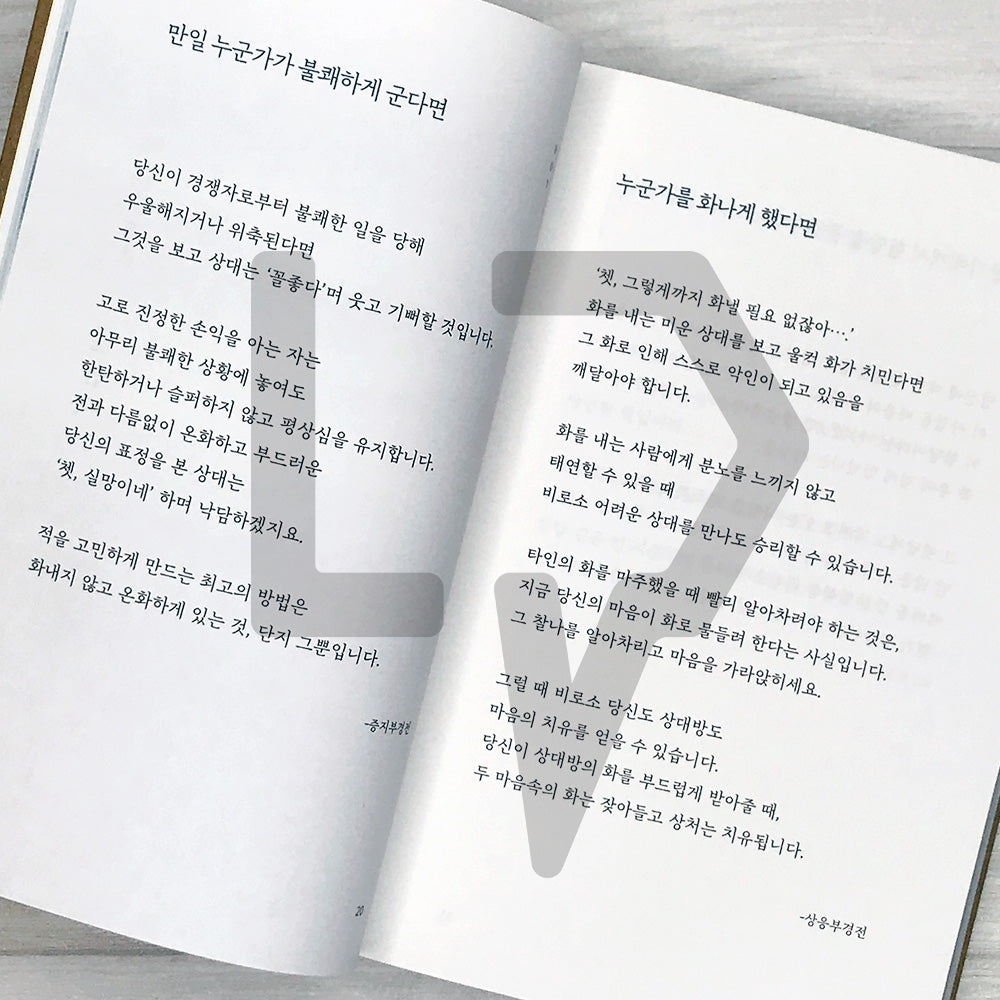 만일 누군가가 불쾌하게 군다면
당신이 경쟁자로부터 불쾌한 일을 당해
우울해지거나 위축된다면
그것을 보고 상대는 ‘꼴좋다’며 웃고 기뻐할 것입니다.
고로 진정한 손익을 아는 자는
아무리 불쾌한 상황에 놓여도
한탄하거나 슬퍼하지 않고 평상심을 유지합니다.
전과 다름없이 온화하고 부드러운
당신의 표정을 본 상대는
‘쳇, 실망이네’ 하며 낙담하겠지요.
적을 고민하게 만드는 최고의 방법은
화내지 않고 온화하게 있는 것, 단지 그뿐입니다.
-증지부경전
20
누군가를 화나게 했다면
‘쳇, 그렇게까지 화낼 필요 없잖아….’
화를 내는 미운 상대를 보고 울컥 화가 치민다면
그 화로 인해 스스로 악인이 되고 있음을
깨달아야 합니다.
화를 내는 사람에게 분노를 느끼지 않고
태연할 수 있을 때
비로소 어려운 상대를 만나도 승리할 수 있습니다.
타인의 화를 마주했을 때 빨리 알아차려야 하는 것은,
지금 당신의 마음이 화로 물들려 한다는 사실입니다.
그 찰나를 알아차리고 마음을 가라앉히세요.
그럴 때 비로소 당신도 상대방도
마음의 치유를 얻을 수 있습니다.
당신이 상대방의 화를 부드럽게 받아줄 때,
두 마음속의 화는 잦아들고 상처는 치유됩니다.
-상응부경전